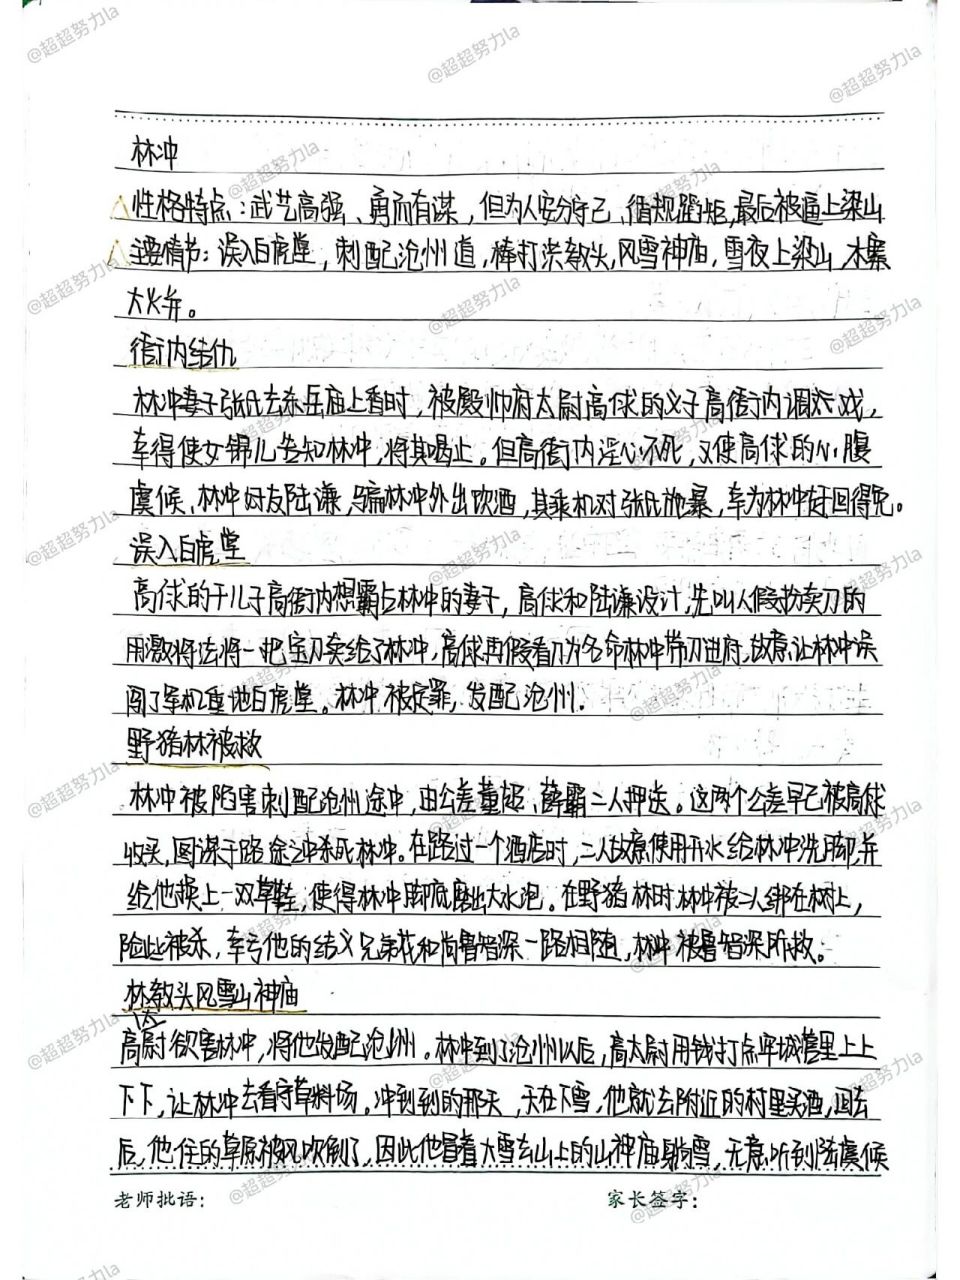 林冲
性格特点：武艺高强、勇而有谋，但为人安分守己、循规蹈矩，最后被逼上梁山
主要情节：误入白虎堂，刺配沧州道，棒打洪教头，风雪神庙，雪夜上梁山，水寨
大火并。
衙内结仇
林冲妻子张氏去东岳庙上香时，被殿帅府太尉高俅的义子高衙内调戏，
幸得使女锦儿告知林冲，将其喝止。但高衙内淫心不死，又使高俅的心腹
虞候、林冲好友陆谦，骗林冲外出饮酒，其乘机对张氏施暴，幸为林冲赶回得免。
误入白虎堂
高俅的干儿子高衙内想霸占林冲的妻子，高俅和陆谦设计，先叫人假扮卖刀的
用激将法将一把宝刀卖给了林冲，高俅再假看刀为名命林冲带刀进府，故意让林冲误
闯了军机重地白虎堂。林冲被定罪，发配沧州.
野猪林被救
林冲被陷害刺配沧州途中，由公差董超、薛霸二人押送。这两个公差早已被高俅
收买，图谋于路途之中杀死林冲。在路过一个酒店时，二人故意使用开水给林冲洗脚，并
给他换上一双草鞋，使得林冲脚底磨出大水泡。在野猪林时林冲被二人绑在树上，
险些被杀，幸亏他的结义兄弟花和尚鲁智深一路相随，林冲被鲁智深所救。
林教头风雪山神庙
高太尉欲害林冲，将他发配沧州。林冲到了沧州以后，高太尉用钱打点牢城营里上上
下下，让林冲去看守草料场。冲到到的那天，天在下雪，他就去附近的村里买酒，回去
后，他住的草原被风吹倒了，因此他冒着大雪去山上的山神庙躲雪，无意听到陆虞候
老师批语：
家长签字：
@超超努力la